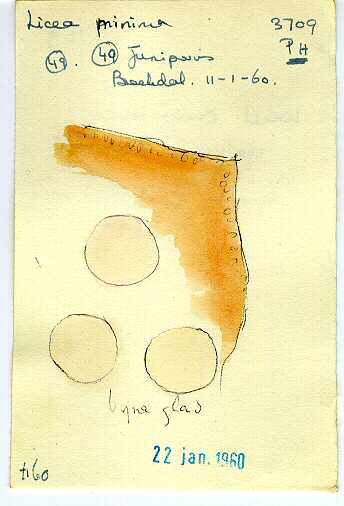 Licea minima 3709
49. 49 Juniperus PH
Boekdal. 11-1-60.
bijna glad
22 jan. 1960
#60